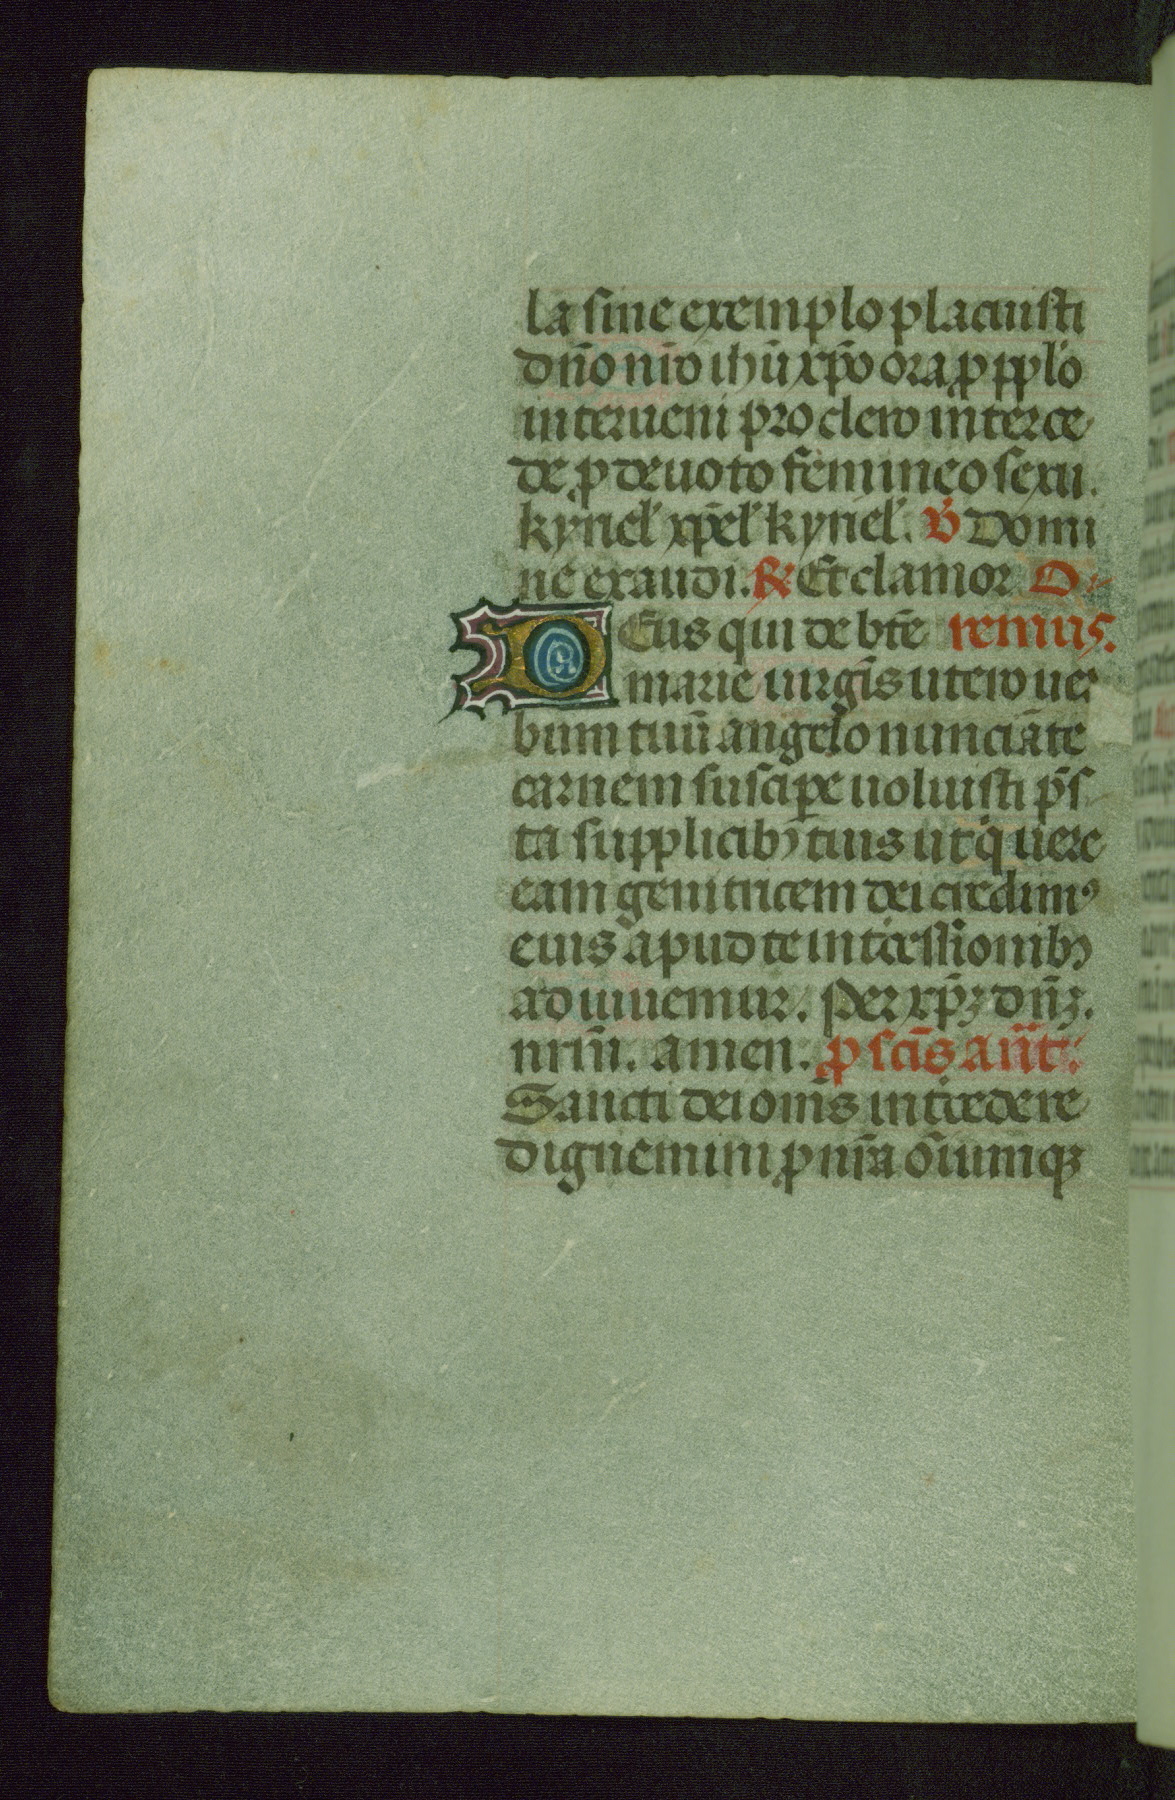 la sine exemplo placuisti
dño nr̃o ihũ xp̃o ora ꝓ ppl'o
interueni pro clero interce
de ꝓ deuoto femineo sexu.
kyriel' xp̃el' kyriel'. ℣ Domi
ne exaudi. ℟ Et clamor O
Eus qui de bt̃e remus.
marie uirgĩs utero uer
bum tuũ angelo nunciãte
carnem suscipe uoluisti p̃s
ta supplicibꝫ tuis ut q̇ uere
eam genitricem dei credimꝰ
eius apud te int̾cessionibꝫ
adiuuemur. Per xp̃ꝫ dñꝫ.
nrm̃. amen. ꝓ scĩs añt.
Sancti dei om̃s int̾cedere
dignemini ꝓ nr̃a oĩumqꝫ